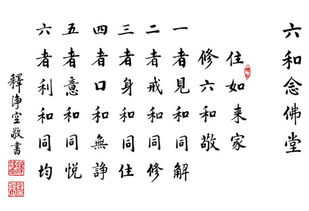 六和念佛堂
住如来家
修六和敬
一者見和同解
二者戒和同修
三者身和同住
四者口和無諍
五者意和同悅
六者利和同均
釋淨空敬書